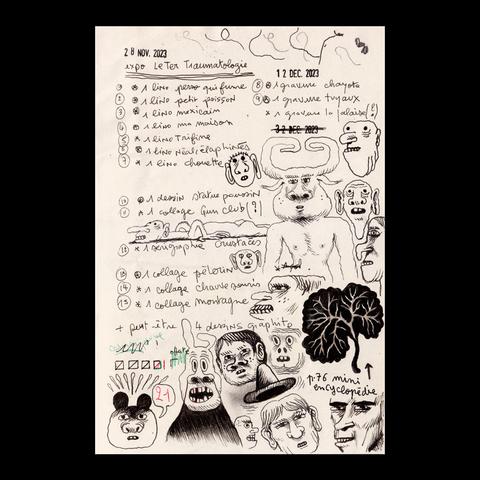 28 NOV. 2023
expo LeTer Traumatologie
1 lino perso qui fume
2 1 lino petit poisson
3 1 lino mexicain
4 1 lino ma maison
5 1 lino Trifine
6 1 lino
7 1 lino chouette
1 dessin statue poussin
1 collage Gun club (?)
12 * 1 sérigraphie crustacés
1 collage pèlerin
14 * 1 collage chauve souris
1 collage montagne
+ peut être 4 dessins graphite
12 DEC. 2023
8 1 gravure chayote
9 1 gravure tuyaux
* 1 gravure la falaise (?)
32 DEC. 2023
21
p.76 mini
encyclopédie